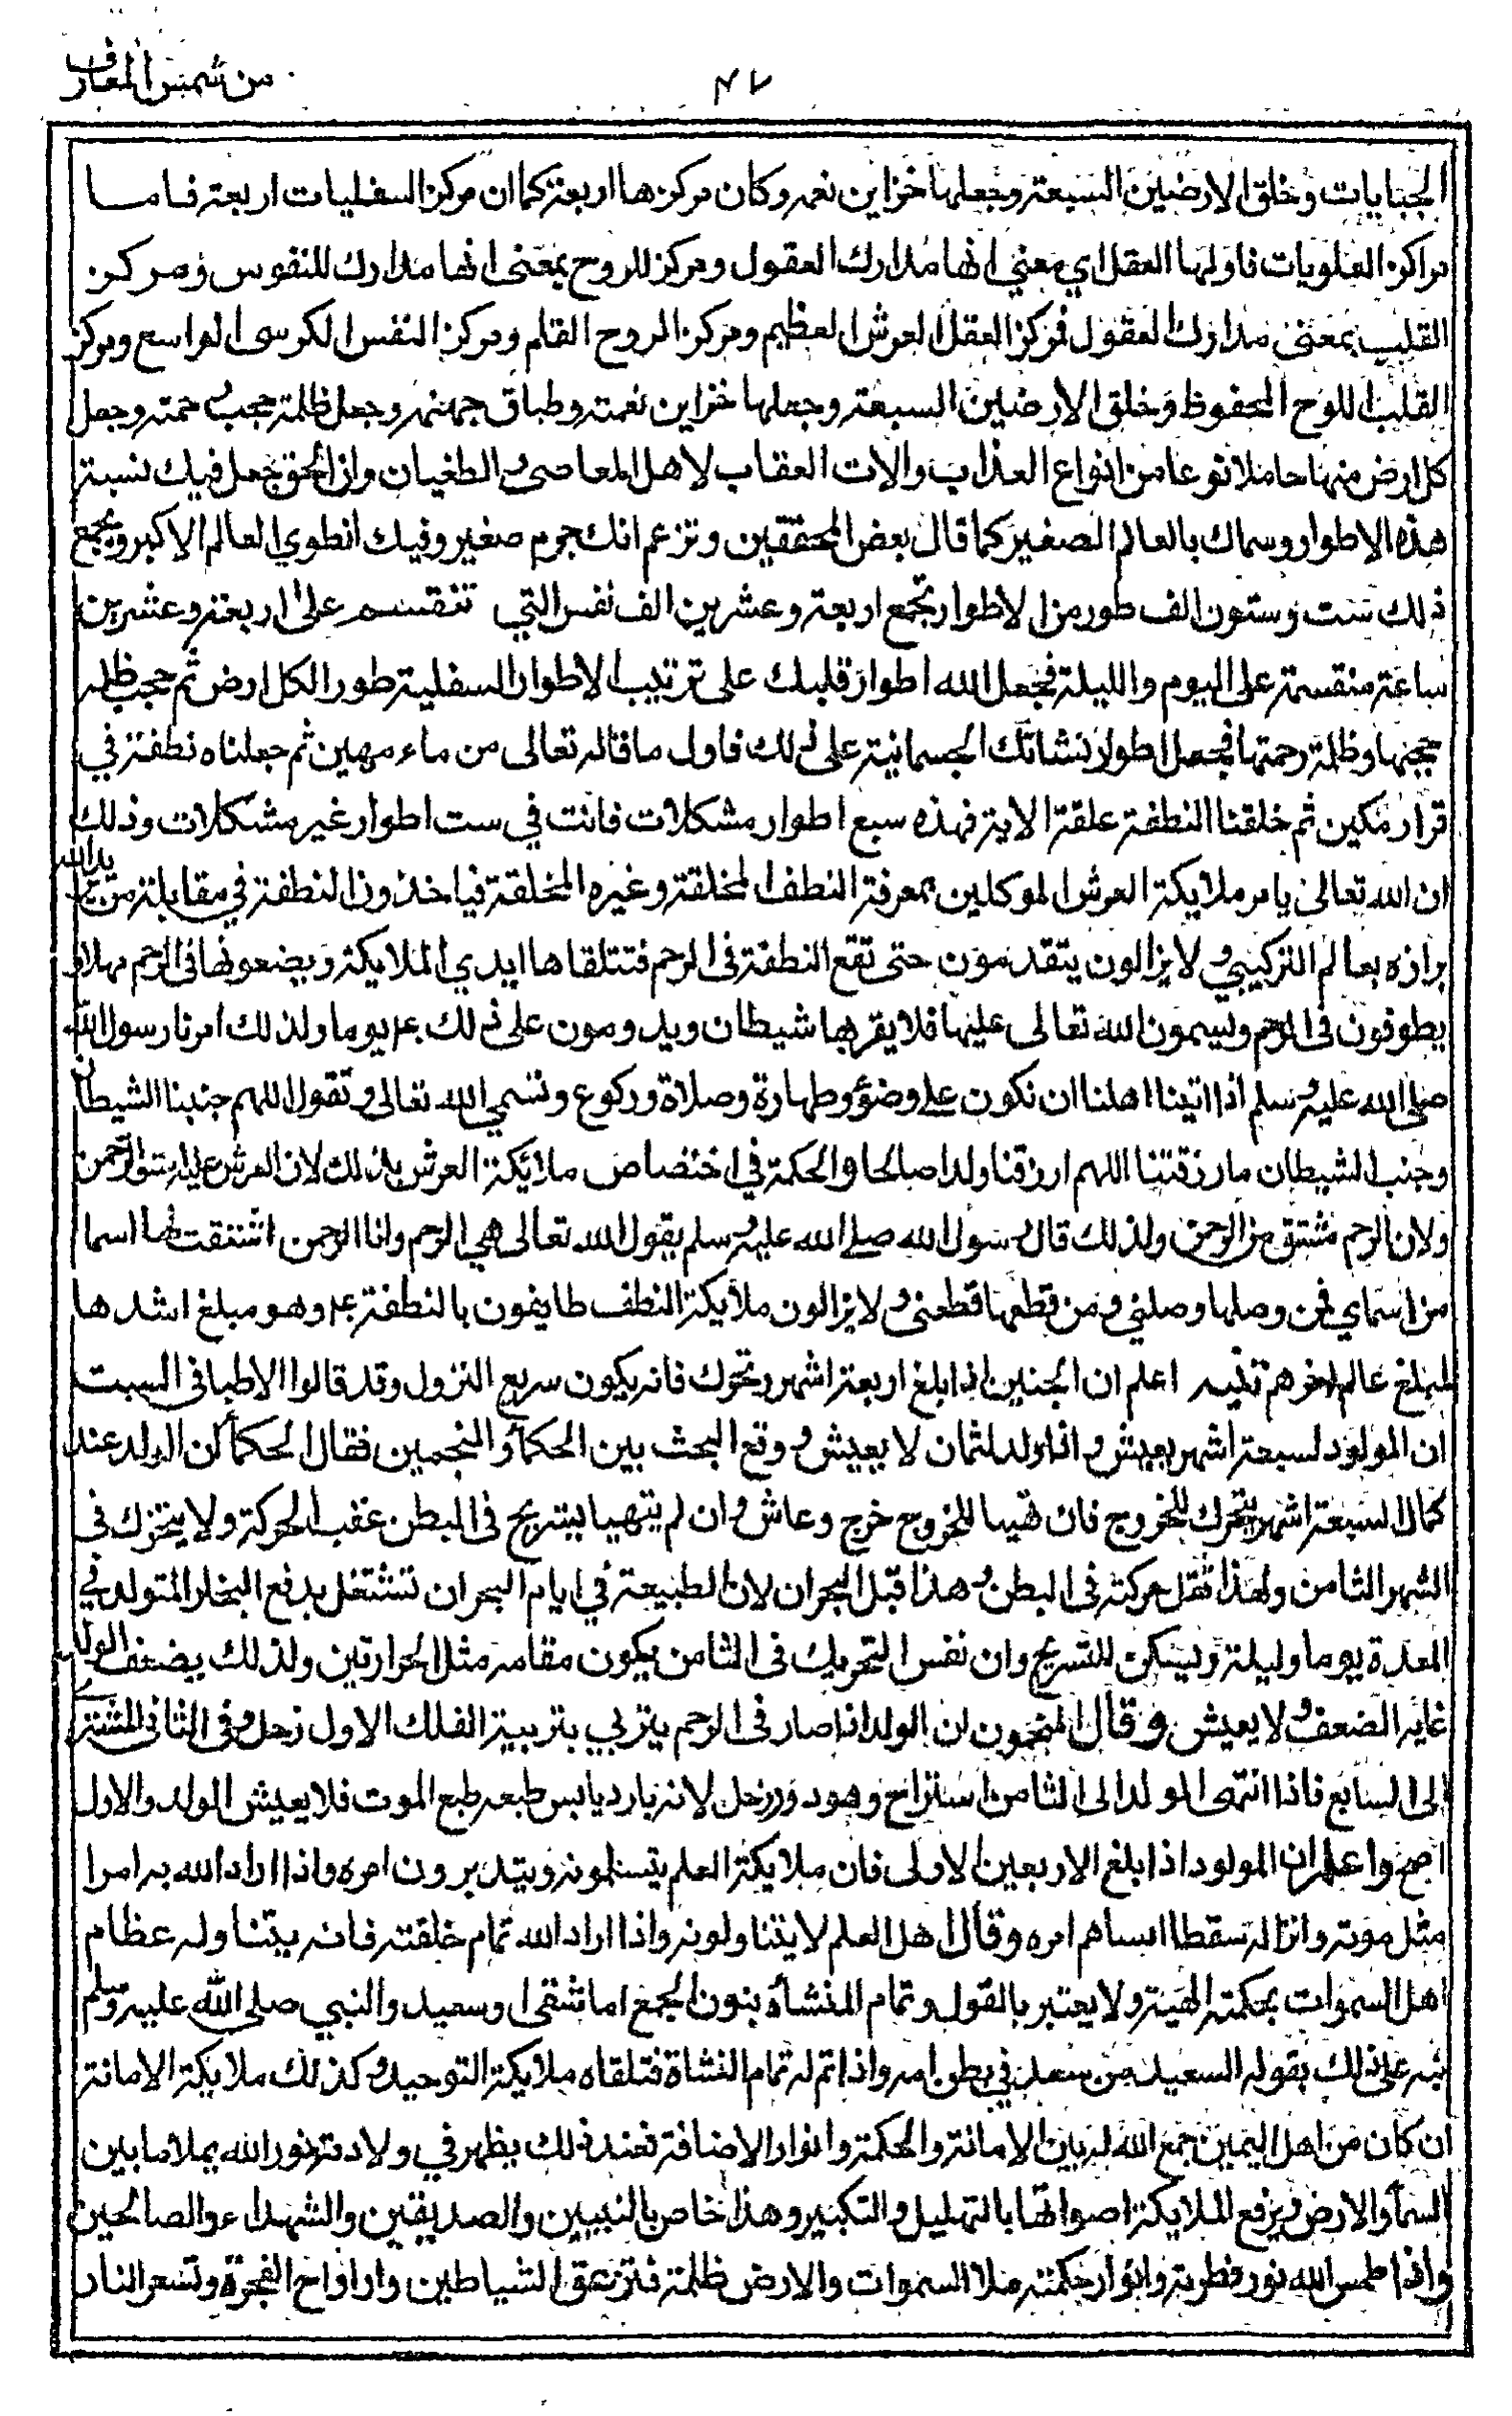 من شمس المعارف
٤٧
الجنايات وخلق الارضين السبعة وجعلها خزاين نعمه وكان مركزها اربعة كما ان مركز السفليات اربعة فاما
مراكز العلويات فاولها العقل اي معنى انها مدارك العقول ومركز للروح بمعنى انها مدارك للنفوس ومركز
القلب بمعنى مدارك العقول فمركز العقل العرش العظيم ومركز الروح القلم ومركز النفس الكرسى الواسع ومركز
القلب اللوح المحفوظ وخلق الارضين السبعة وجعلها خزاين نعمته وطباق جهنم وجعل ظلمة حجب رحمته وجعل
كل ارض منها حاملا نوعا من انواع العذاب والات العقاب لاهل المعاصى والطغيان وان الحق جعل فيك نسبة
هذه الاطوار وسماك بالعالم الصغير كما قال بعض المحققين وتزعم انك جرم صغير وفيك انطوي العالم الاكبر ويجمع
ذلك ست وستون الف طور من الاطوار تجمع اربعة وعشرين الف نفس التي تنقسم على اربعة وعشرين
ساعة منقسمة على اليوم والليلة فجعل الله اطوار قلبك على ترتيب الاطوار السفلية طور الكل ارض ثم حجب ظله
حجبها وظلة رحمتها فجعل اطوار نشاتك الجسمانية على ذلك فاول ما قاله تعالى من ماء مهين ثم جعلناه نطفة في
قرار مكين ثم خلقنا النطفة علقة الاية فهذه سبع اطوار مشكلات فانت في ست اطوار غير مشكلات وذلك
ان الله تعالى يامر ملايكة العرش الموكلين بمعرفة النطف المخلقة وغيره المخلقة فياخذون النطفة في مقابلة من يريد الله
برازه بعالم التركيب ولا يزالون يتقدمون حتى تقع النطفة فى الرحم فتتلقاها ايدي الملايكة ويضعونها فى الرحم مهلا و
يطوفون فى الرحم ويسمون الله تعالى عليها فلا يقربها شيطان ويدومون على ذلك ٤٠ يوما ولذلك امرنا رسول الله
صلى الله عليه وسلم اذا اتينا اهلنا ان نكون على وضؤ وطهارة وصلاة وركوع ونسمي الله تعالى وتقول اللهم جنبنا الشيطان
وجنب الشيطان ما رزقتنا اللهم ارزقنا ولدا صالحا والحكمة في اختصاص ملايكة العرش بذلك لان العرش عليه استوا الرحمن
ولان الرحم مشتق من الرحمن ولذلك قال رسول الله صلى الله عليه وسلم يقول الله تعالى هي الرحم وانا الرحمن اشتقت لها اسما
من اسماي فمن وصلها وصلني ومن قطعها قطعنى ولا يزالون ملايكة النطف طايفون بالنطفة ٤٠ وهو مبلغ اشدها
لمبلغ عالم اخر هم تنبيه اعلم ان الجنين اذا بلغ اربعة اشهر وتحرك فانه يكون سريع النزول وقد قالوا الاطبا فى السبت
ان المولود لسبعة اشهر يعيش واذا ولد لثمان لا يعيش ووقع البحث بين الحكما والنجمين فقال الحكما ان الولد عند
كمال السبعة اشهر يتحرك للخروج فان تهيا للخروج خرج وعاش وان لم يتهيا يستريح فى البطن عقب الحركة ولا يتحرك فى
الشهر الثامن ولهذا تقل حركته فى البطن وهذا قبل البحران لان الطبيعة في ايام البحران تشتغل بدفع البخار المتولد في
المعدة يوما وليلة ويسكن للتسريح وان نفس التحريك فى الثامن يكون مقامه مثل الحرارتين ولذلك يضعف الولد
غاية الضعف ولا يعيش وقال المنجمون ان الولد اذا صار فى الرحم يتربي بتربية الفلك الاول زحل وفى الثانى المشترى
الى السابع فاذا انتهى المولد الى الثامن استراح وهو دور زحل لانه بارد يابس طبعه طبع الموت فلا يعيش الولد والاول
اصح واعلم ان المولود اذا بلغ الاربعين الاولى فان ملايكة العلم يتسلمونه ويتدبرون امره واذا اراد الله به امرا
مثل موته وانزاله سقطا انساهم امره وقال اهل العلم لا يتناولونه واذا اراد الله تمام خلقته فانه يتناوله عظام
اهل السموات بحكمة الهية ولا يعتبر بالقول وتمام المنشأة بنون الجمع اما شقى او سعيد والنبي صلى الله عليه وسلم
نبه على ذلك بقوله السعيد من سعد في بطن امه واذا تم له تمام النشاة فتلقاه ملايكة التوحيد وكذلك ملايكة الامانة
ان كان من اهل اليمين جمع الله له بين الامانة والحكمة وانوار الاضافة فعند ذلك يظهر في ولادته نور الله يملا ما بين
السما والارض ويرفع الملايكة اصواتها بالتهليل والتكبير وهذا خاص بالنبيين والصديقين والشهداء والصالحين
واذا طمس الله نور فطرته وانوار حكمته ملا السموات والارض ظلمة فتزعق الشياطين وارواح الفجرة وتسعر النار